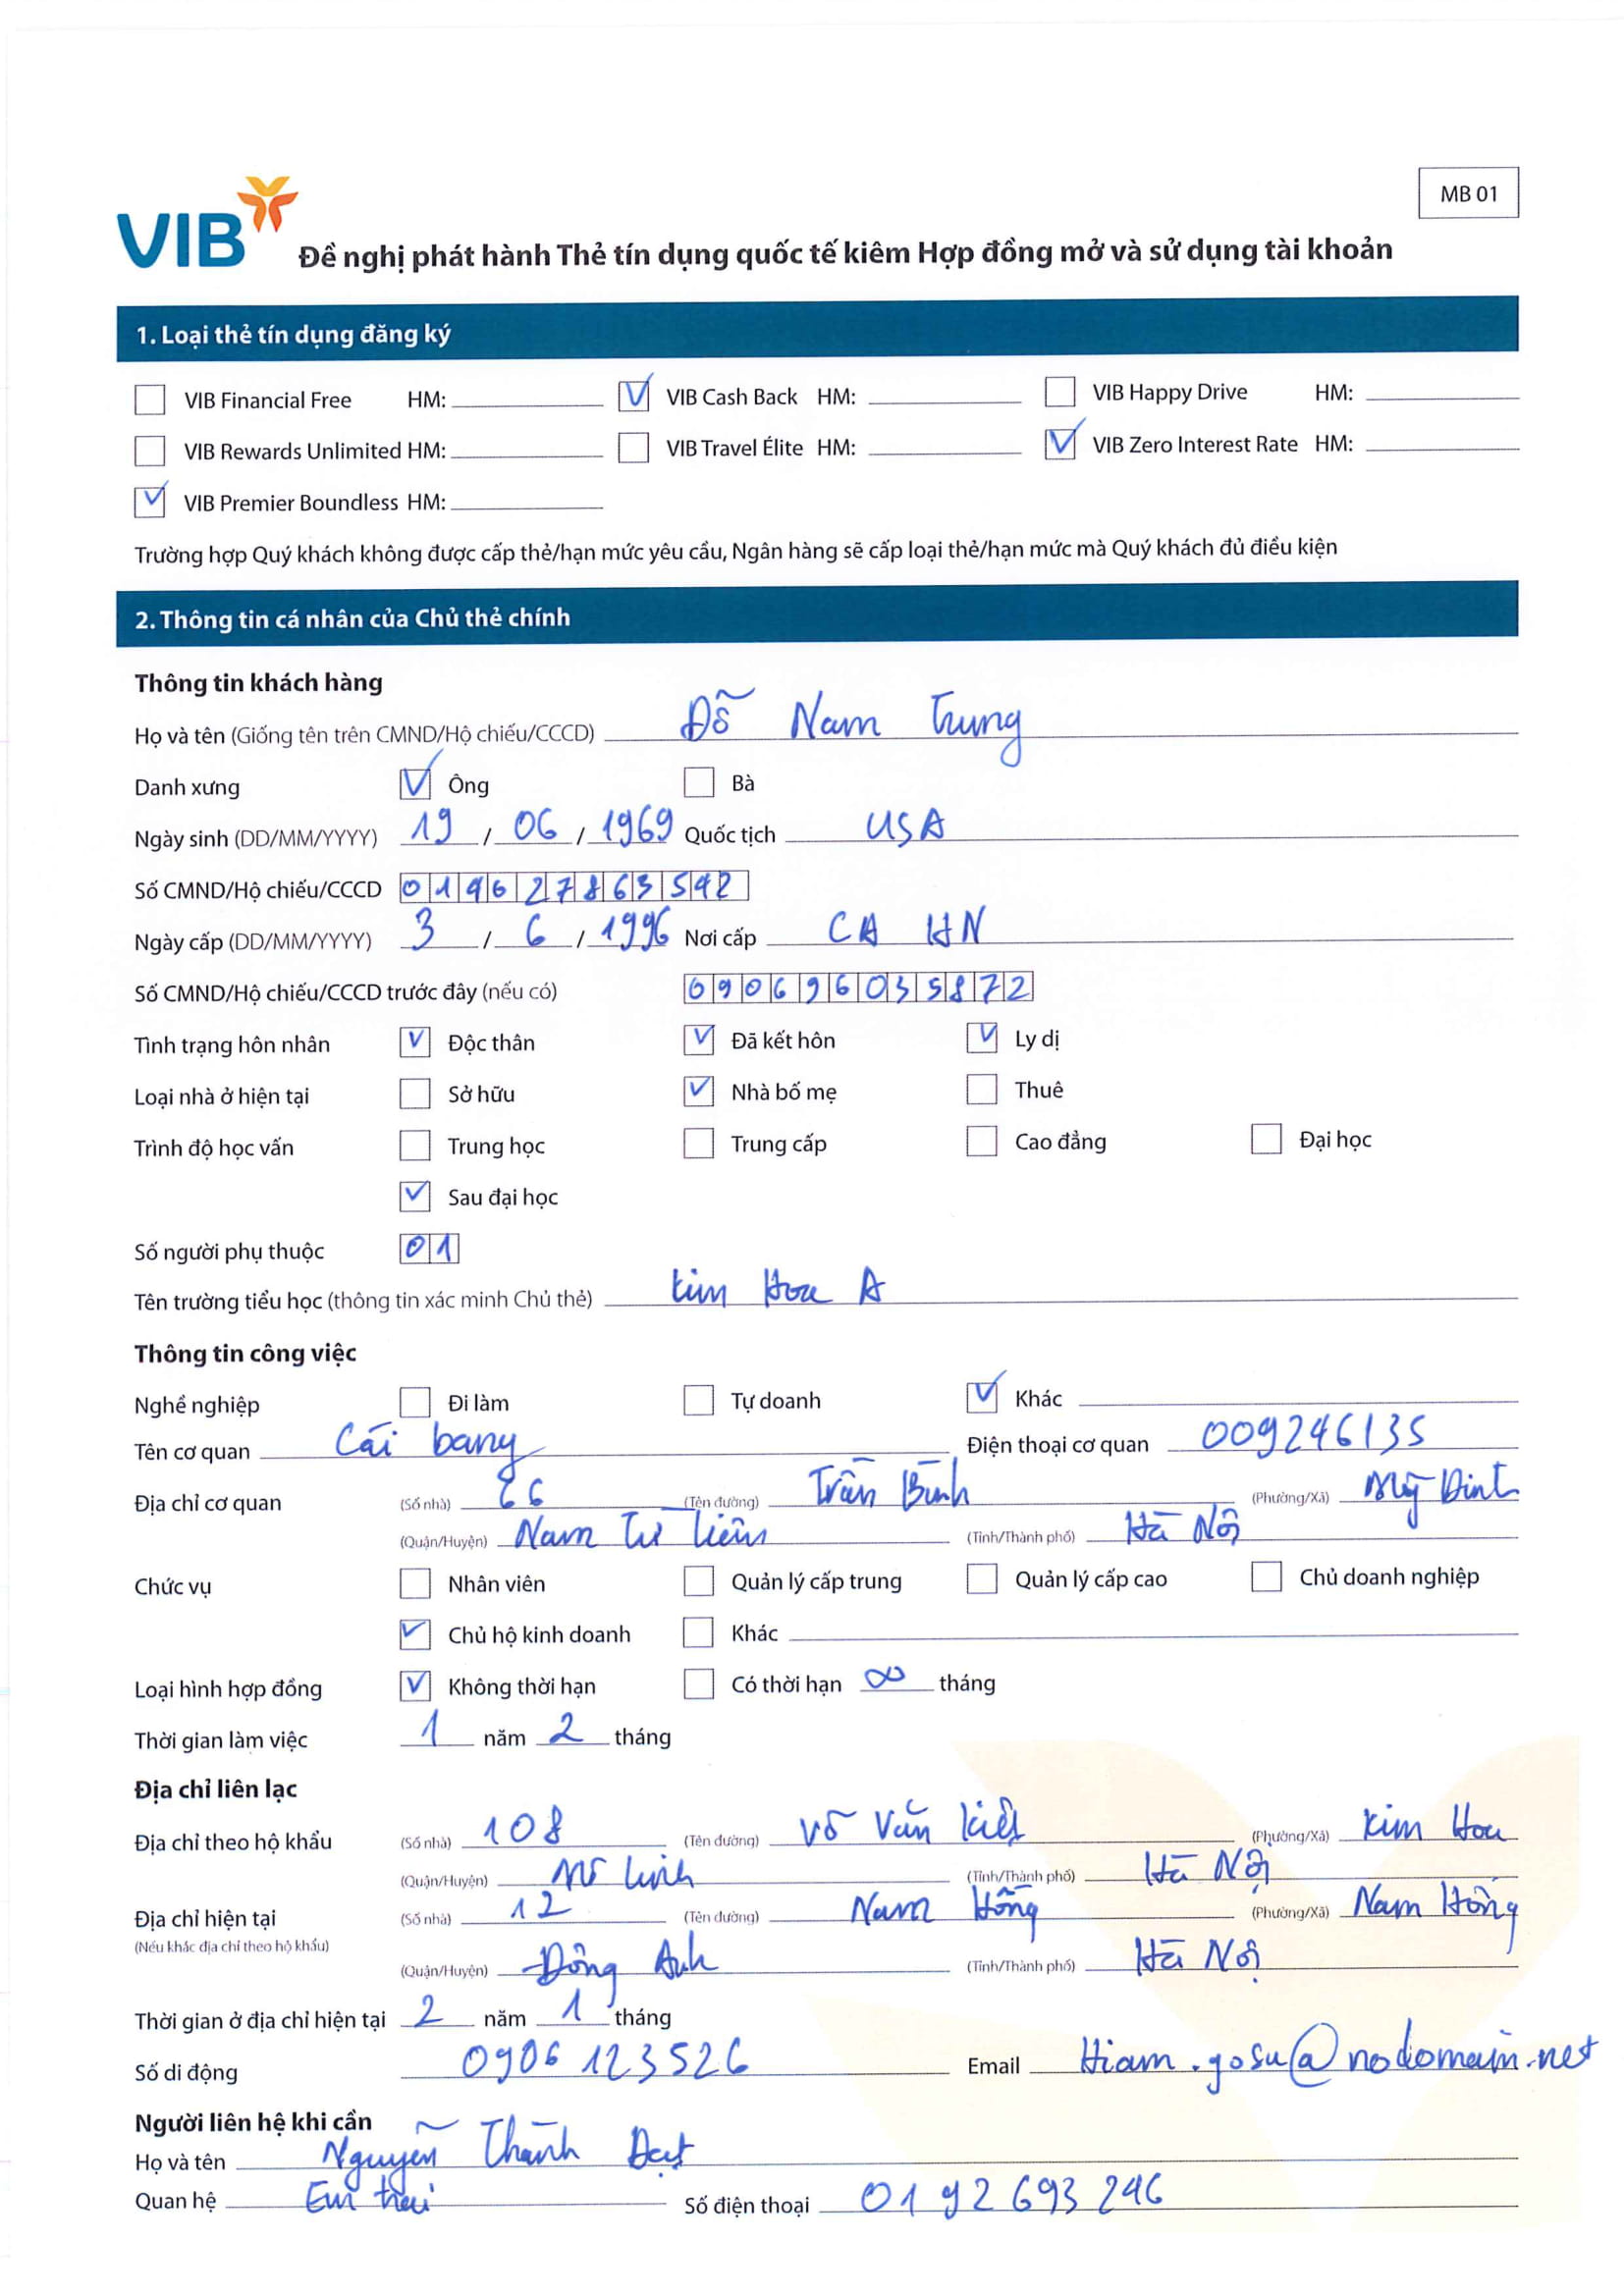 MB 01
VIB Đề nghị phát hành Thẻ tín dụng quốc tế kiêm Hợp đồng mở và sử dụng tài khoản
1. Loại thẻ tín dụng đăng ký
VIB Financial Free HM: V VIB Cash Back HM: VIB Happy Drive HM:
VIB Rewards Unlimited HM: VIB Travel Élite HM: V VIB Zero Interest Rate HM:
V VIB Premier Boundless HM:
Trường hợp Quý khách không được cấp thẻ/hạn mức yêu cầu, Ngân hàng sẽ cấp loại thẻ/hạn mức mà Quý khách đủ điều kiện
2. Thông tin cá nhân của Chủ thẻ chính
Thông tin khách hàng
Họ và tên (Giống tên trên CMND/Hộ chiếu/CCCD) Đỗ Nam Trung
Danh xưng V Ông Bà
Ngày sinh (DD/MM/YYYY) 19 / 06 / 1969 Quốc tịch USA
Số CMND/Hộ chiếu/CCCD 019627863542
Ngày cấp (DD/MM/YYYY) 3 / 6 / 1996 Nơi cấp CA HN
Số CMND/Hộ chiếu/CCCD trước đây (nếu có) 090696035872
Tình trạng hôn nhân V Độc thân V Đã kết hôn V Ly dị
Loại nhà ở hiện tại Sở hữu V Nhà bố mẹ Thuê
Trình độ học vấn Trung học Trung cấp Cao đẳng Đại học
V Sau đại học
Số người phụ thuộc 01
Tên trường tiểu học (thông tin xác minh Chủ thẻ) Kim Hoa A
Thông tin công việc
Nghề nghiệp Đi làm Tự doanh V Khác
Tên cơ quan Cái bang Điện thoại cơ quan 009246135
Địa chỉ cơ quan (Số nhà) 66 (Tên đường) Trần Bình (Phường/Xã) Mỹ Đình
(Quận/Huyện) Nam Từ Liêm (Tỉnh/Thành phố) Hà Nội
Chức vụ Nhân viên Quản lý cấp trung Quản lý cấp cao Chủ doanh nghiệp
V Chủ hộ kinh doanh Khác
Loại hình hợp đồng V Không thời hạn Có thời hạn ∞ tháng
Thời gian làm việc 1 năm 2 tháng
Địa chỉ liên lạc
Địa chỉ theo hộ khẩu (Số nhà) 108 (Tên đường) Võ Văn Kiệt (Phường/Xã) Kim Hoa
(Quận/Huyện) Mê Linh (Tỉnh/Thành phố) Hà Nội
Địa chỉ hiện tại (Số nhà) 12 (Tên đường) Nam Hồng (Phường/Xã) Nam Hồng
(Nếu khác địa chỉ theo hộ khẩu)
(Quận/Huyện) Đông Anh (Tỉnh/Thành phố) Hà Nội
Thời gian ở địa chỉ hiện tại 2 năm 1 tháng
Số di động 0906123526 Email Hiam.gosu@nodomain.net
Người liên hệ khi cần
Họ và tên Nguyễn Thành Đạt
Quan hệ Em trai Số điện thoại 0192693246